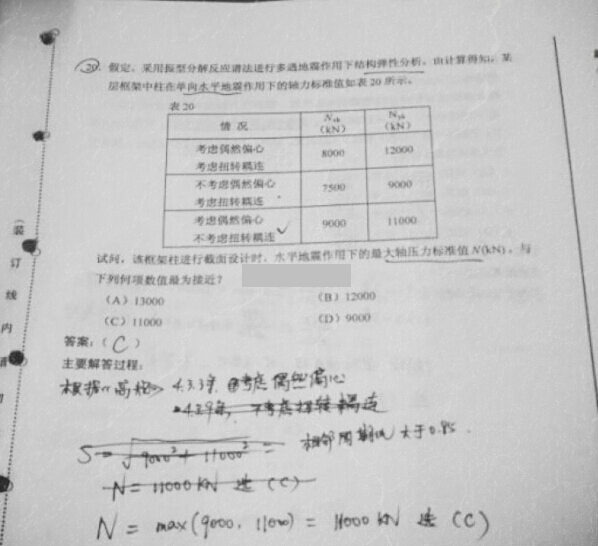 20. 假定，采用振型分解反应谱法进行多遇地震作用下结构弹性分析，由计算得知，某
层框架中柱在单向水平地震作用下的轴力标准值如表 20 所示。
表 20
情 况 Nxk (kN) Nyk (kN)
考虑偶然偏心
考虑扭转耦连 8000 12000
不考虑偶然偏心
考虑扭转耦连 7500 9000
考虑偶然偏心
不考虑扭转耦连 ✓ 9000 11000
试问，该框架柱进行截面设计时，水平地震作用下的最大轴压力标准值 N(kN)，与
下列何项数值最为接近？
（A）13000 （B）12000
（C）11000 （D）9000
答案：（ C ）
主要解答过程：
根据《高规》4.3.3条, 考虑偶然偏心
4.3.9条, 不考虑扭转耦连
相邻周期比大于0.85.
S = √9000² + 11000² =
N = 11000 kN 选 (C)
N = max(9000, 11000) = 11000 kN 选 (C)
（装
订
线
内